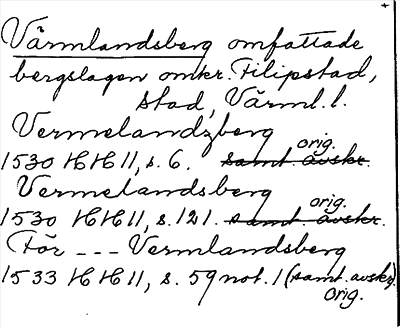 Värmlandsberg omfattade
bergslagen omkr. Filipstad,
stad, Värml. l.
Vermelandzberg
1530 HH 11, s. 6. samt. avskr. orig.
Vermelandsberg
1530 HH 11, s. 121. samt. avskr. orig.
För --- Vermlandsberg
1533 HH 11, s. 59 not. 1 (samt. avskr.)
orig.